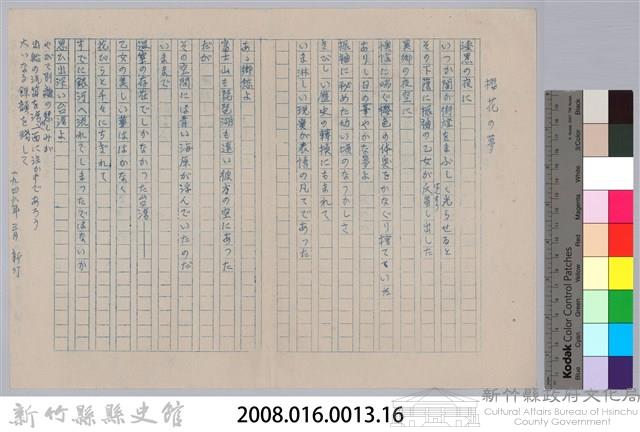 櫻花の夢
漆黒の夜に
いつか闇が街燈をまぶしく光らせると
その下蔭に振袖の乙女が
異郷の夜空に
ありし日の華やかな夢よ
振袖に秘めた幼い頃のなつかしさ
きびしい歴史の轉換にもまれて
いま淋しい現実が表情の凡てであった
あゝ御燈よ
富士山も琵琶湖も遠い彼方の空にあった
だが
その空間には青い海原が浮んでいたのだ
いままで
温室の存在でしかなかった台湾——
乙女の美しい華ははかなく
花びらと千々にちぎれて
すでに銀河へ流れてしまったではないか
思い出深い台湾よ
やがて別離の悲しみが
出船の汽笛を一面に泣かすであろう
大いなる錯誤を残して
一九四六年 三月 新竹
新竹縣縣史館
2008.016.0013.16
新竹縣政府文化局
Cultural Affairs Bureau of Hsinchu
County Government
Kodak Color Control Patches
Blue
Cyan
Green
Yellow
Red
Magenta
White
3/Color
Black